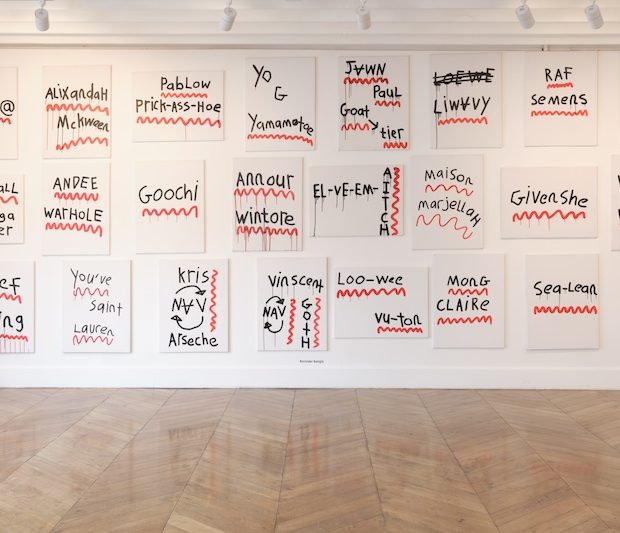 @
ALiXandaH
McKween
PabLow
Prick-Ass-Hoe
Yo
G
Yamamotae
J∀WN
PauL
Goat
tier
LOEWE
LiW∀VY
RAF
semens
aLL
ga
er
ANDEE
WARHOLE
GOOCHi
Annour
wintore
EL-VE-EM-
AITCH
maison
marjellaH
GivenShe
ef
ing
You've
Saint
Lauren
Kris
N∀V
Arseche
vinscent
NAV
GOTH
Loo-wee
vu-ton
MONG
CLAIRe
Sea-Lean